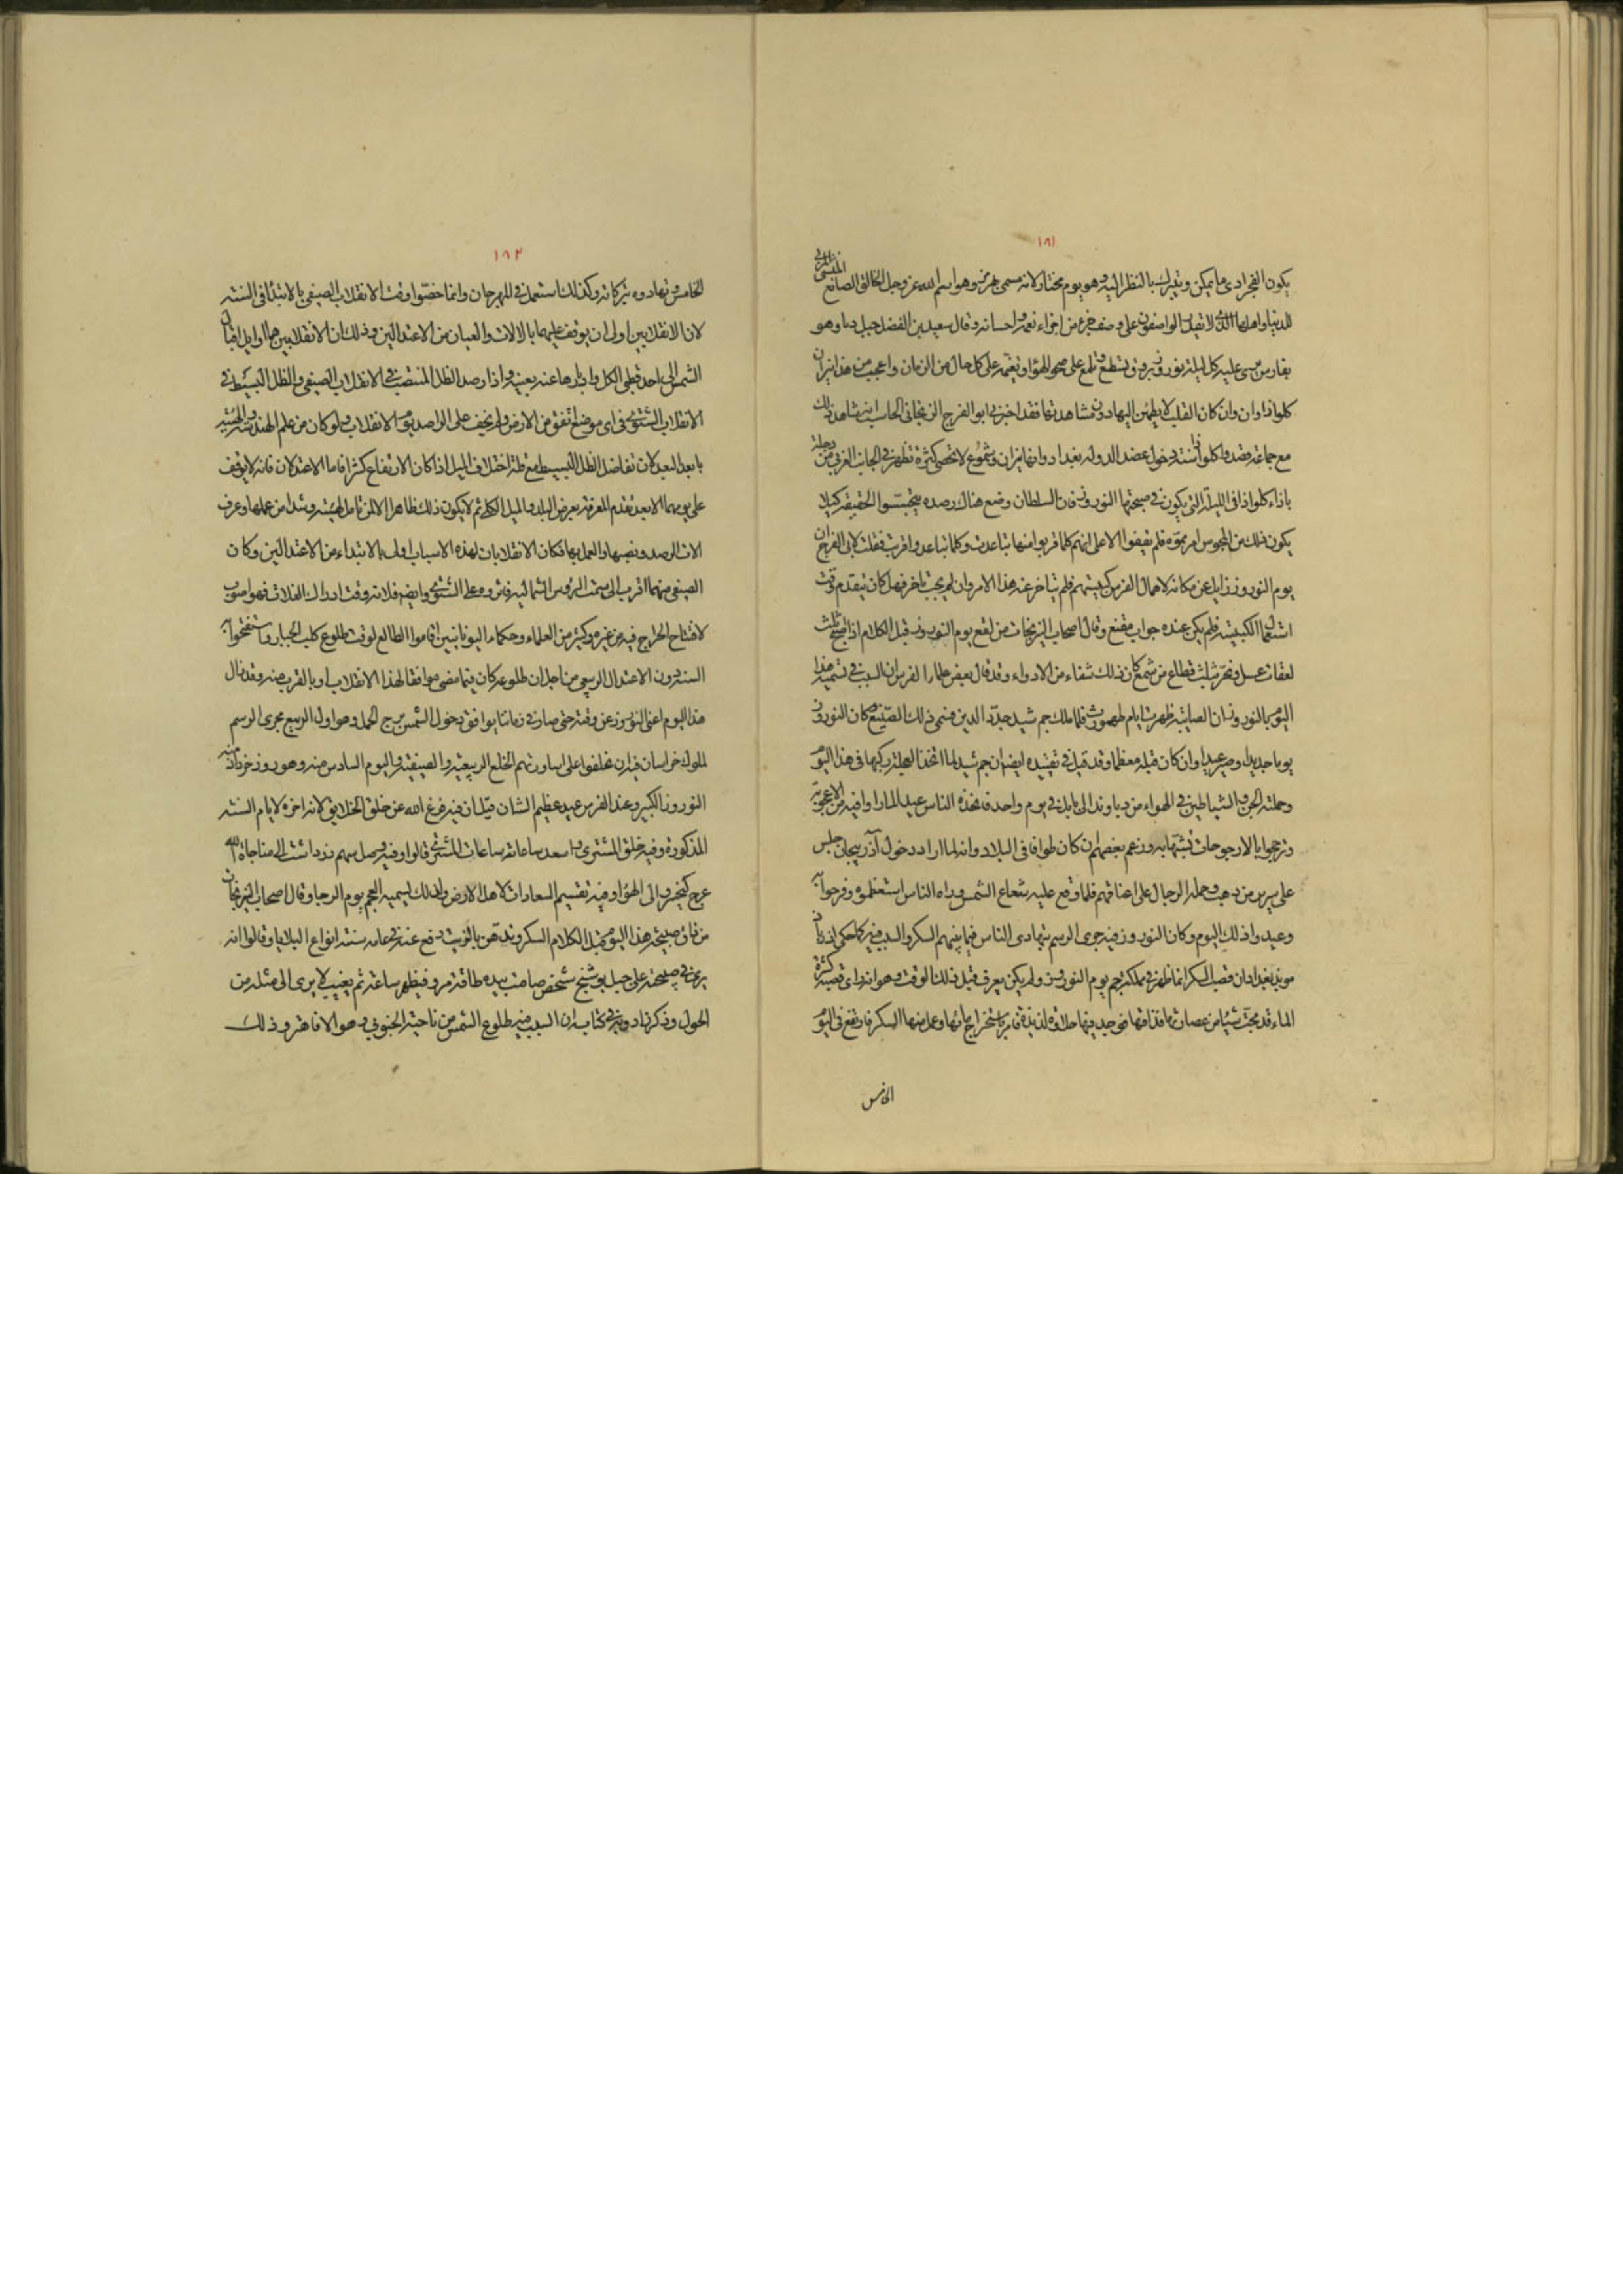 ١٨١
يكون الفجر ادى ما يمكن ويتبرك بالنظر اليه وهو يوم مختار لانه مسمى بهرمز وهو اسم الله عز وجل الخالق الصانع المنشى المربى
للدنيا واهلها الذى لا يقدر الواصفون على وصف جزء من اجزاء نعمه واحسانه وقال سعيد بن الفضل جبل دما وهو
بفارس يرى عليه كل ليلة نوروز بروق تسطع وتلمع على صحو الهواء وتغيمه على كل حال من الزمان واعجب من هذا نيران
كلواذا وان كان القلب لا يطمئن اليها دون مشاهدتها فقد اخبرنى ابو الفرج الزنجانى الحاسب انه شاهد ذلك
مع جماعة قصدوا كلواذا سنة دخول عضد الدوله بغداد وانها نيران وشموع لا تحصى كثرة تظهر فى الجانب الغربى من دجلة
باذاء كلواذا فى الليلة التى يكون فى صبيحتها النوروز فان السلطان وضع هناك رصده يتجسسوا الحقيقة كيلا
يكون ذلك من المجوس امر مموه فلم يقفوا الا على انهم كلما قربوا منها تباعدت وكلما تباعدوا قربت فقلت لابى الفرج ان
يوم النوروز زايل عن مكانه لاهمال الفرس كبيستهم فلم يتاخر عنه هذا الامر وان لم يجب تاخره فهل كان يتقدم وقت
استعمال الكبيسة فلم يكن عنده جواب مقنع وقال اصحاب النيرنجات من لعق يوم النوروز قبل الكلام اذا اصبح ثلث
لعقات عسل وبخر بثلث قطاع من شمع كان ذلك شفاء من الادواء وقد قال بعض علماء الفرس ان السبب فى تسمية هذا
اليوم بالنوروز ان الصابئة ظهرت ايام طهمورث فلما ملك جم شيد جدد الدين فسمى ذلك الصنيع وكان النوروز
يوما جديدا وصير عيدا وان كان قبله معظما وقد قيل فى تعييده ايضا ان جم شيد لما اتخذ العجلة ركبها فى هذا اليوم
وحملته الجن والشياطين فى الهواء من دباوند الى بابل فى يوم واحد فاتخذه الناس عيد الما راوا فيه من الاعجوبة
وترجحوا بالارجوحات تشبها به وزعم بعضهم ان كان طوافا فى البلاد وانه لما اراد دخول آذربيجان جلس
على سرير من ذهب وحمله الرجال على اعناقهم فلما وقع عليه شعاع الشمس وراه الناس استعظموه وفرحوا به
وعيدوا ذلك اليوم وكان النوروز فيه جرى الرسم بتهادى الناس فيما بينهم السكر والسبب فيه كما حكى اذرباد
موبذ بغداد ان قصب السكر انما ظهر فى مملكة جم يوم النوروز ولم يكن يعرف قبل ذلك الوقت وهو انه راى قصبة كثيرة
الماء قد مجت شيا من عصارتها فذاقها فوجد فيها حلاوة لذيذة فامر باستخراج مائها وعمل منها السكر فارتفع فى اليوم
الخامس
١٨٢
الخامس وتهادوه تبركا به وكذلك استعمل فى المهرجان وانما خصوا وقت الانقلاب الصيفى بالابتداء فى السنة
لان الانقلابين اولى ان يوقف عليهما بالالات والعيان من الاعتدالين وذلك ان الانقلابين هما اوايل اقبال
الشمس الى احد قطبى الكل وادبارها عنه بعينه واذا رصد الظل المنتصب فى الانقلاب الصيفى والظل البسيط فى
الانقلاب الشتوى فى اى موضع اتفق من الارض لم يخف على الراصد يوم الانقلاب ولو كان من علم الهندسة والهيئة
بابعد البعد لان تفاضل الظل البسيط مع قلة اختلاف الميل اذا كان الارتفاع كثيرا فاما الاعتدلان فانه لا يوقف
على يوميهما الا بعد تقدم المعرفة بعرض البلد والميل الكلى ثم لا يكون ذلك ظاهرا الا لمن تامل الهيئة وشدا من علمها وعرف
الات الرصد ونصبها والعمل بها فكان الانقلابان لهذه الاسباب اولى بالابتداء من الاعتدالين وكان
الصيفى منهما اقرب الى سمت الرؤس الشمالية فاثروه على الشتوى وايضا فلانه وقت ادراك الغلات فهو اصوب
لافتتاح الخراج فيه من غيره وكثير من العلماء وحكماء اليونانيين اقاموا الطالع لوقت طلوع كلب الجبار واستفتحوا به
السنة دون الاعتدال الربيعى من اجل ان طلوعه كان فيما مضى موافقا لهذا الانقلاب او بالقرب منه وقد زال
هذا اليوم اعنى النوروز عن وقته حتى صار فى زماننا يوافق دخول الشمس برج الحمل وهو اول الربيع فجرى الرسم
لملوك خراسان فيه ان يخلعوا على اساورتهم الخلع الربيعية والصيفية واليوم السادس منه وهو روز خرداد منه
النوروز الكبير وعند الفرس عيد عظيم الشان قيل ان فيه فرغ الله عن خلق الخلايق لانه اخره لايام السته
المذكورة وفيه خلق المشترى واسعد ساعاته ساعات المشترى قالوا وفيه وصل سهم زردادشت الى مناجاة الله
عرج كيخسرو الى الهواء وفيه تقسيم السعادات لاهل الارض ولذلك يسميه العجم يوم الرجا وقال اصحاب النيرنجات
من ذاق صبيحة هذا اليوم قبل الكلام السكر وتدهن بالزيت دفع عنه فى عامه سنته انواع البلايا وقالوا انه
يرى فى صبيحته على جبل بوشنج شخص صامت بيده طاقة مرو فيظهر ساعة ثم يغيب لا يرى الى مثله من
الحول وذكر زادويه فى كتابه ان السبب فيه طلوع الشمس من ناحية الجنوبى وهو الافاهتر وذلك